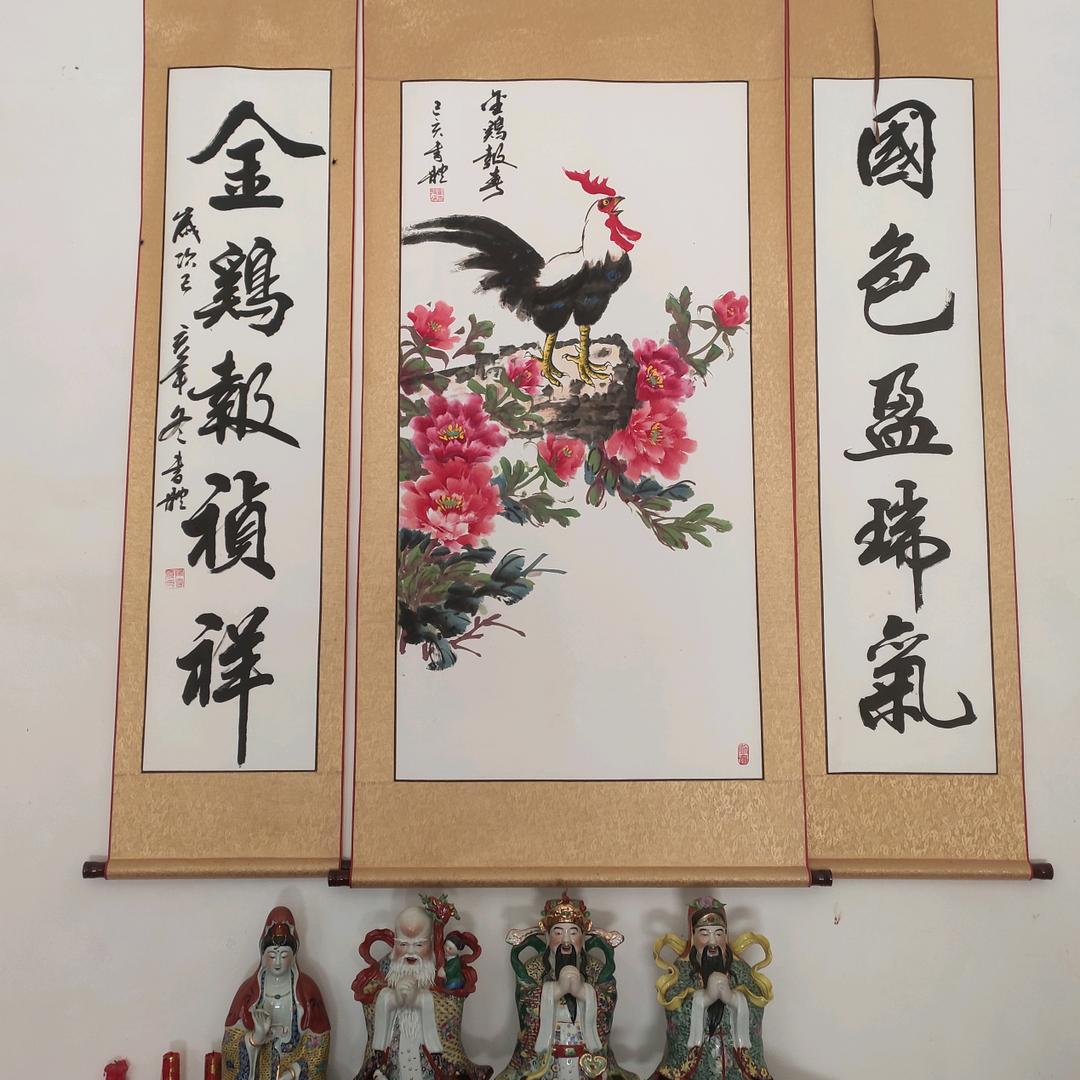 國色盈瑞氣
金鷄報春
己亥書體
金鷄報禎祥
歲次己亥年冬書體